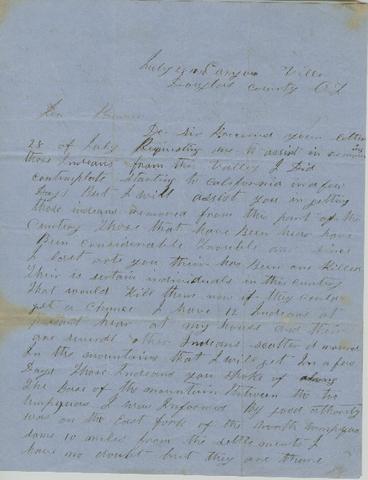 July Canyon Ville
Douglas County O.T.
De Sir Received your letter
28 of July Requesting me to assist in removing
those Indians from this Valley I did
contemplate Starting to California in a few
Days But I will assist you in getting
those indians removed from this part of the
Country Those that have been hear have
Been Considerable Trouble and since
I last rote you their has Been one Killed
Their is sertain individuals in this Country
that would Kill them now if they could
get a chance I have 12 Indians at
hear at my house and their
are other Indians scatterd around
In the mountains that I will get In a few
Days Those Indians you spoke of along
The Base of the mountain Between the two
Umpquas I was Informed By good athority
was on the East fork of the North Umpqua
some 10 miles from the settlements I
have no doubt but they are there